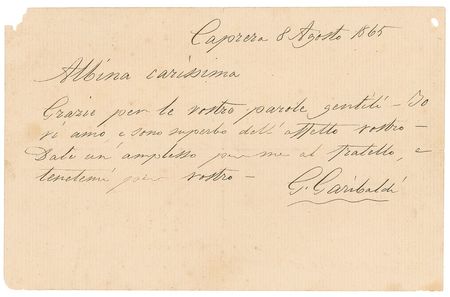 Caprera 8 Agosto 1865
Albina carissima
Grazie per le vostre parole gentili – Io
vi amo e sono superbo dell'affetto vostro –
Date un amplesso per me al fratello, e
tenetemi per vostro –
G. Garibaldi